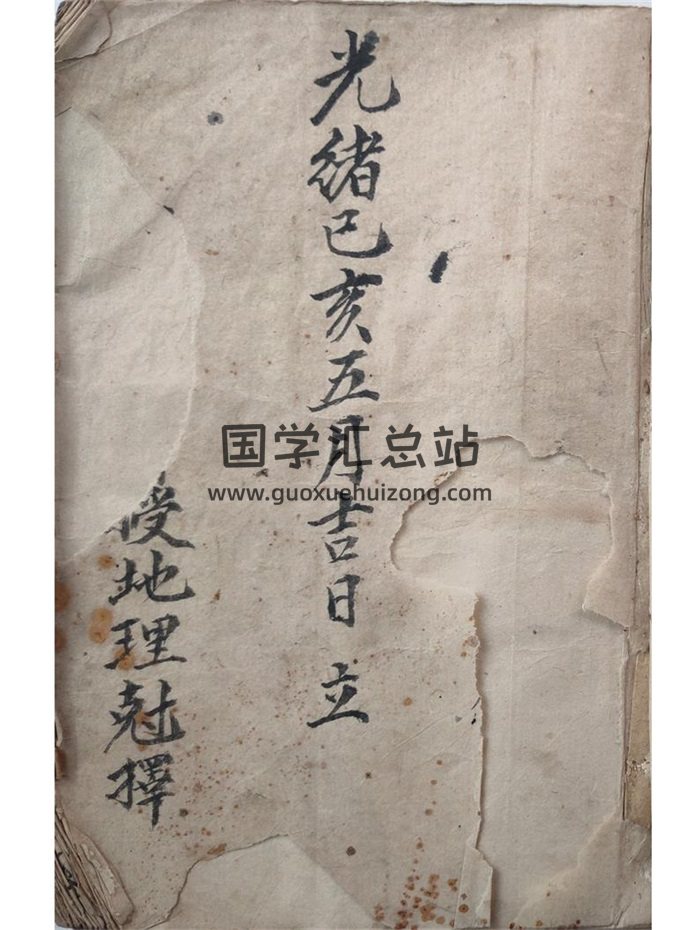 光緒己亥五月吉日立
授地理尅擇
国学汇总站
www.guoxuehuizong.com